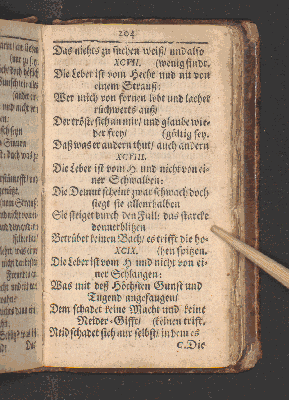 204
Das nichts zu suchen weiß/ und also
XCVII. (wenig findt.
Die Leber ist vom Hecht und nit von
einem Strauß:
Wer mich von fornen lobt und lachet
rückwerts auß/
Der tröste sich an mir/ und glaube wie-
der frey/ (gültig sey.
Daß was er andern thut/ auch andern
XCVIII.
Die Leber ist vom H. und nicht von ei-
ner Schwalben:
Die Demut scheint zwar schwach/ doch
siegt sie allenthalben
Sie steiget durch den Fall: das starcke
donnerblitzen
Betrübet keinen Bach/ es trifft die ho-
XCIX. (hen spitzen.
Die Leber ist vom H. und nicht von ei-
ner Schlangen:
Was mit deß Höchsten Gunst und
Tugend angefangen/
Dem schadet keine Macht und keine
Neider-Gifft/ (keinen trift,
Neid schadet sich nur selbst/ in dem es
C. Die